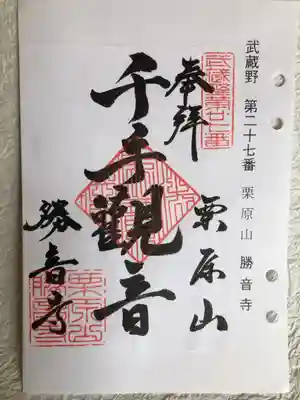 武蔵野 第二十七番 栗原山 勝音寺
奉拝
武蔵野第廿七番
栗原山
千手觀音
勝音寺